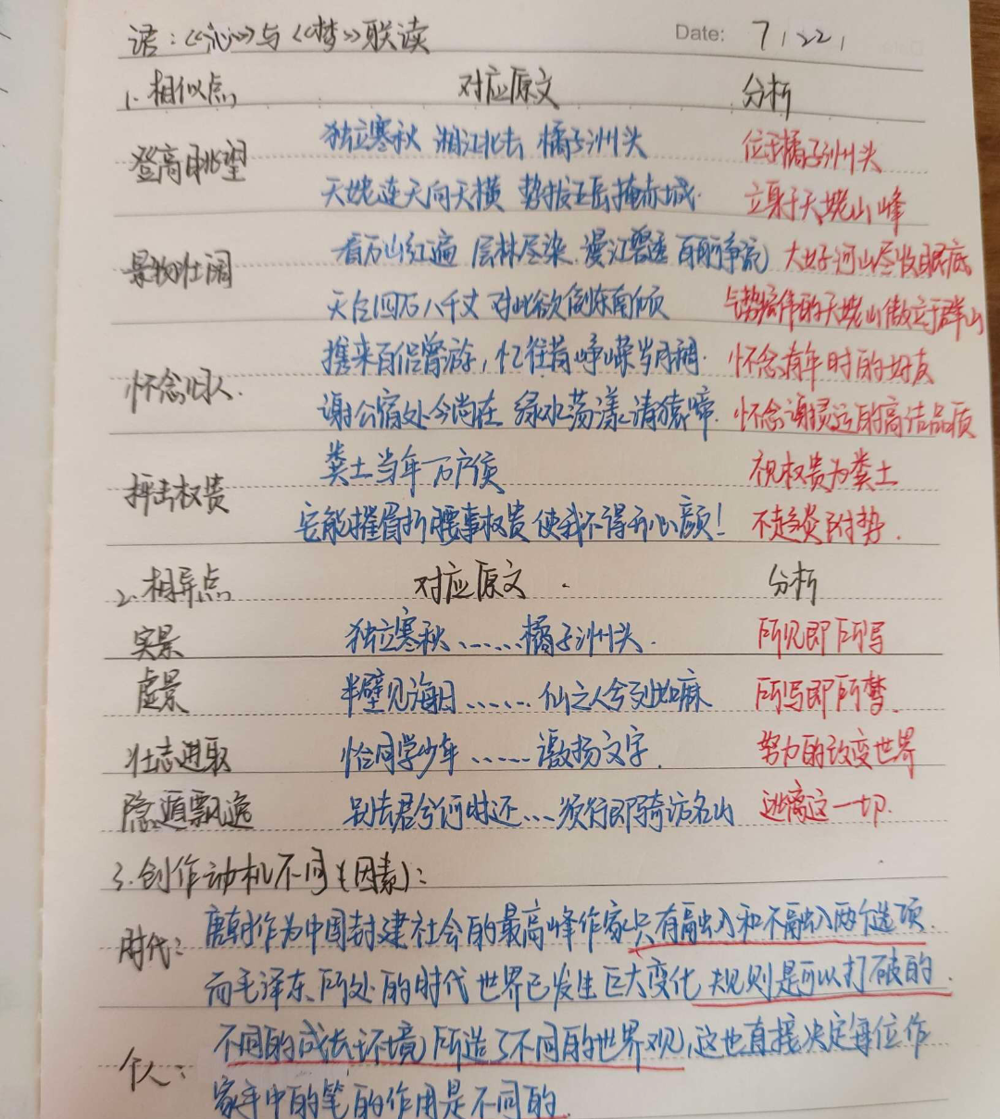 语:《沁》与《梦》联读 Date: 7/22/
1.相似点 对应原文 分析
登高眺望 独立寒秋 湘江北去 橘子洲头 位于橘子洲头
天姥连天向天横 势拔五岳掩赤城. 立身于天姥山峰
景物壮阔 看万山红遍 层林尽染.漫江碧透 百舸争流) 大好河山尽收眼底
天台四万八千丈 对此欲倒东南倾 气势宏伟的天姥山傲立于群山
怀念旧人. 携来百侣曾游,忆往昔峥嵘岁月稠. 怀念青年时的好友
谢公宿处今尚在 绿水荡漾清猿啼. 怀念谢灵运的高洁品质
抨击权贵 粪土当年万户侯 视权贵为粪土
安能摧眉折腰事权贵 使我不得开心颜! 不趋炎附势.
2.相异点 对应原文. 分析
实景 独立寒秋......橘子洲头. 所见即所写
虚景 半壁见海日......仙之人兮列如麻 所写即所梦.
壮志进取 恰同学少年......激扬文字. 努力的改变世界
隐遁飘逸 别去君兮何时还...须行即骑访名山 逃离这一切.
3.创作动机不同(因素):
时代: 唐朝作为中国封建社会的最高峰作家只有融入和不融入两个选项.
而毛泽东所处的时代 世界已发生巨大变化 规则是可以打破的.
个人: 不同的成长环境,所造了不同的世界观,这也直接决定每位作
家手中的笔的作用是不同的.